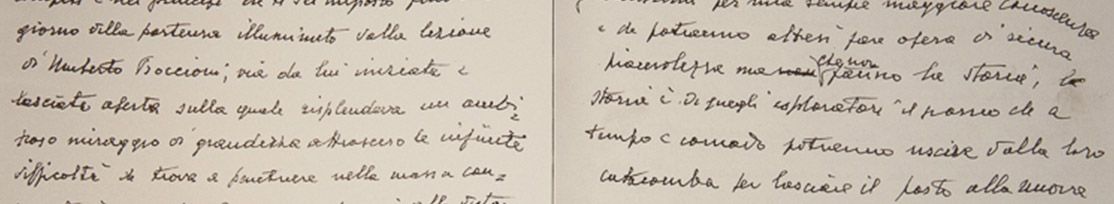 giorno della partenza illuminato dalla lezione
di Umberto Boccioni, via da lui iniziata e
lasciata aperta sulla quale risplendeva un ambi=
zioso miraggio di grandezza attraverso le infinite
difficoltà la trova a penetrare nella massa con=
per una sempre maggiore conoscenza
e da potranno altresì fare opera di sicura
piacevolezza ma che non fanno la storia; la
storia è di quegli esploratori il giorno che a
tempo e comodo potranno uscire dalla loro
catacomba per lasciare il posto alla nuova